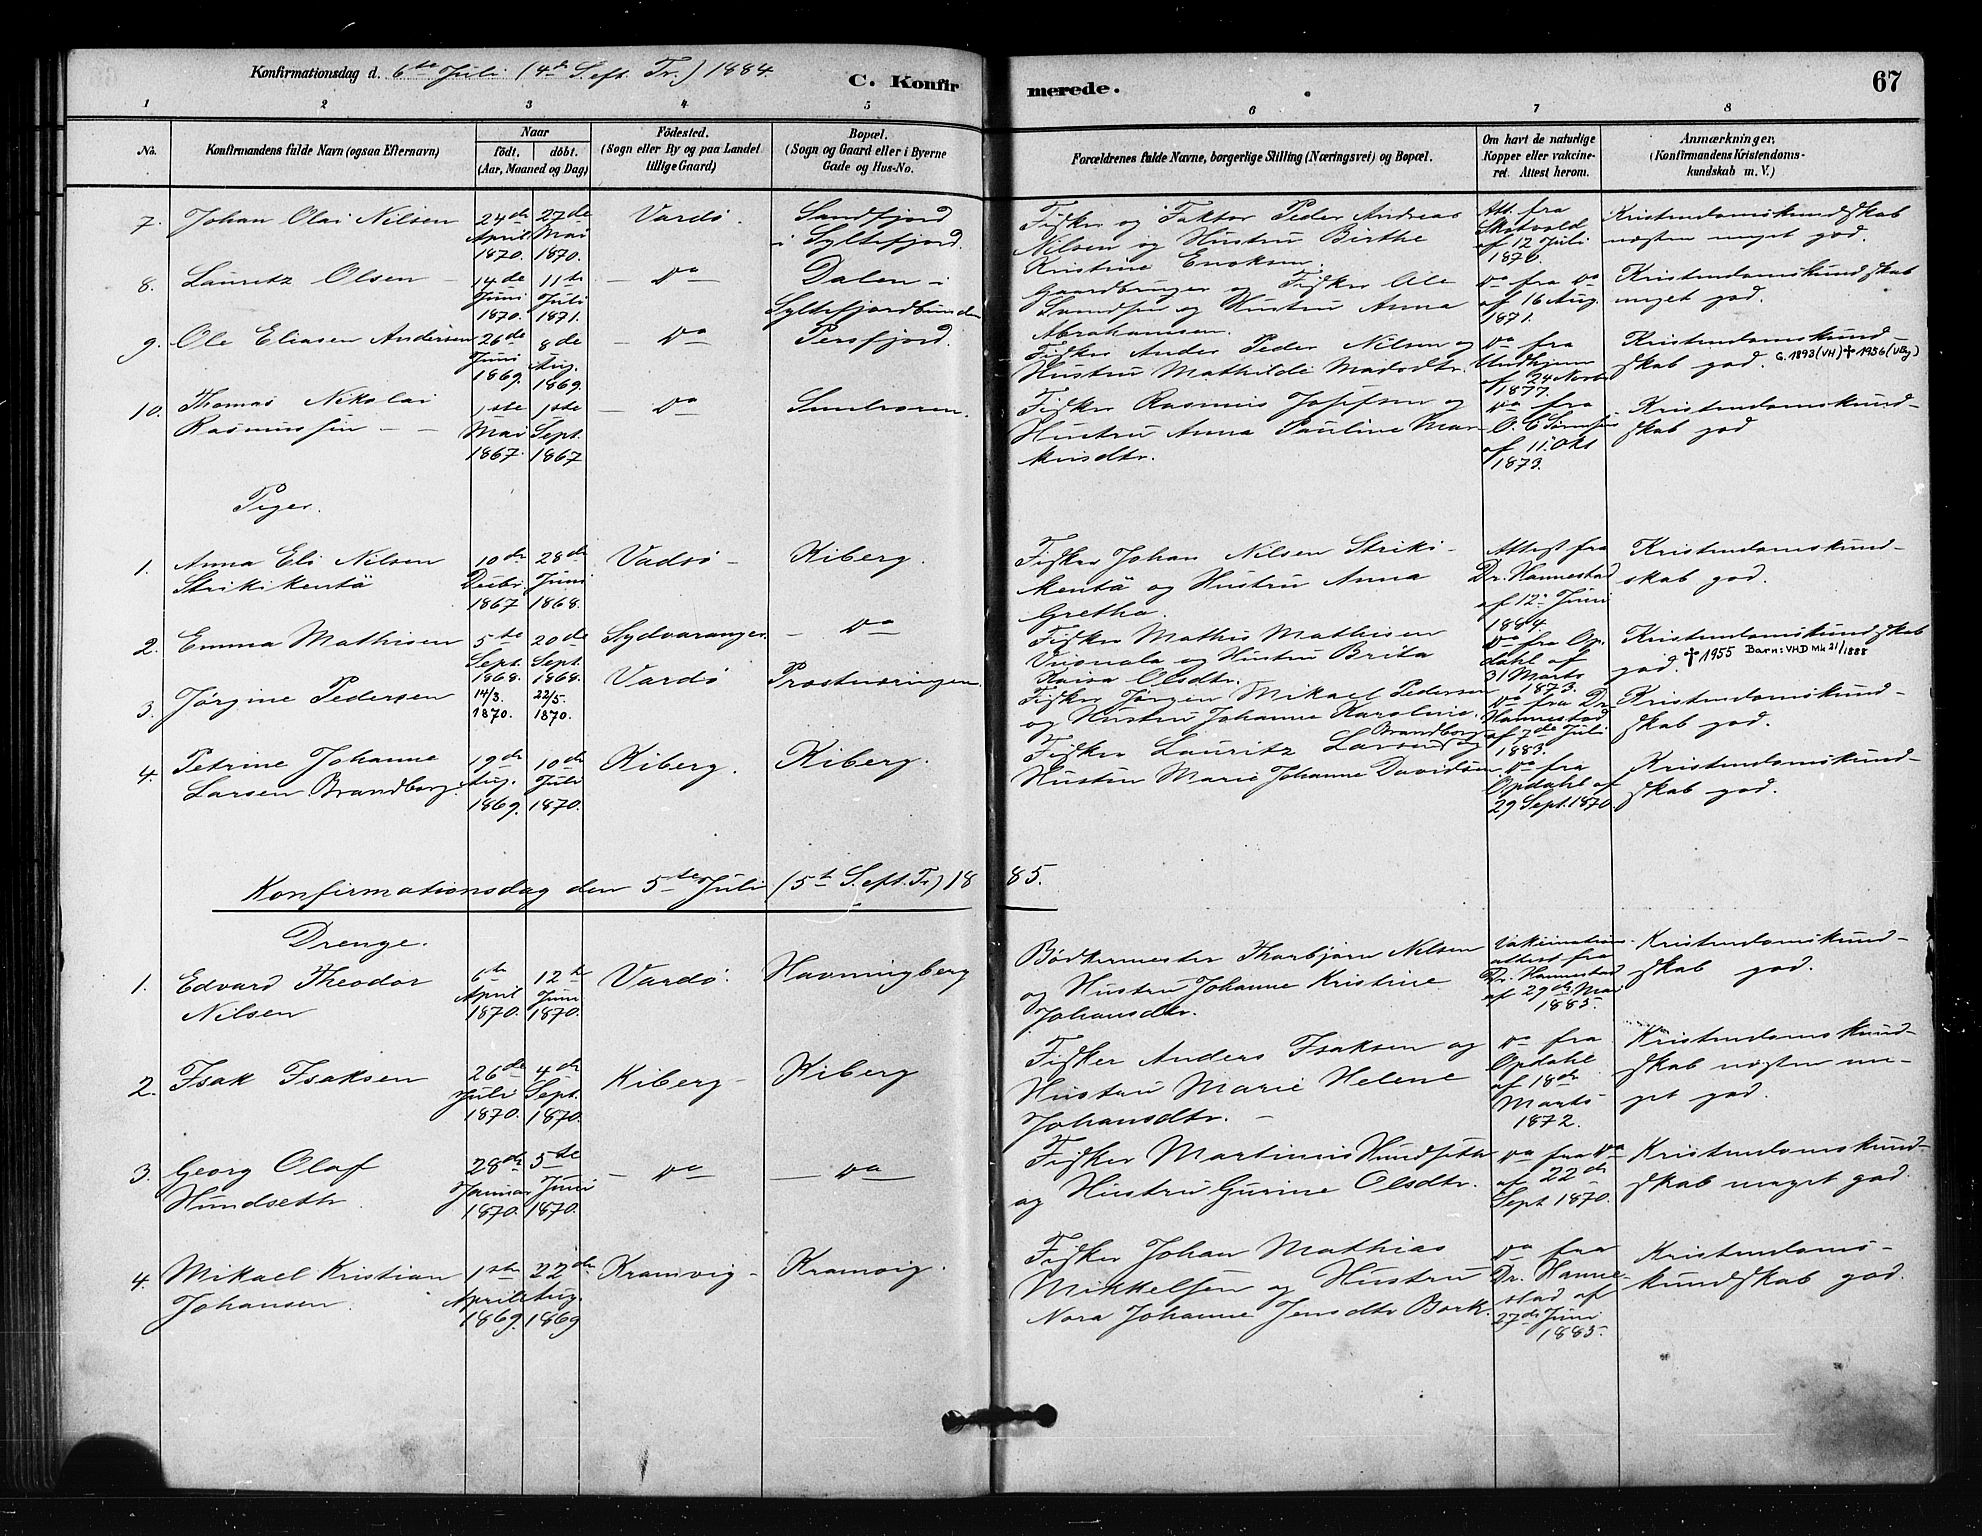 Konfirmationsdag d. 6te Juli (4de S. eft. Tr.) 1884.
C. Konfirmerede.
67
1 2 3 4 5 6 7 8
No.
Konfirmandens fulde Navn (ogsaa Efternavn)
Naar
født. døbt.
(Aar, Maaned og Dag)
Fødested.
(Sogn eller By og paa Landet
tillige Gaard)
Bopæl.
(Sogn og Gaard eller i Byerne
Gade og Hus-No.
Forældrenes fulde Navne, borgerlige Stilling (Næringsvei) og Bopæl.
Om havt de naturlige
Kopper eller vakcine-
ret. Attest herom.
Anmærkninger,
(Konfirmandens Kristendoms-
kundskab m. V.)
7. Johan Olai Nilsen
24de April 1870.
27de Mai 1870.
Vardø.
Sandfjord
i Syltefjord.
Fisker og Faktor Peder Andreas
Nilsen og Hustru Birthe
Kristine Eriksen.
Att. fra
Skotvold
af 12 Juli
1876.
Kristendomskundskab
næsten meget god.
8. Lauritz Olsen
14de Juni 1870.
11te Juli 1871.
do
Dalen i
Syltefjordbunden
Gaardbruger og Fisker Ole
Svendsen og Hustru Anna
Abrahamsen.
do fra do
af 16 Aug.
1871.
Kristendomskundskab
meget god.
9. Ole Eliasen Andersen
26de Juni 1869.
8de Aug. 1869.
do
Persfjord.
Fisker Anders Peder Nilsen og
Hustru Mathilde Madsdtr.
do fra
af 24 Novbr
1877.
Kristendomskund
skab god. G. 1893 (VH) ✝ 1956 (VBy)
10. Thomas Nikolai
Rasmussen
1ste Mai 1867.
1ste Sept. 1867
do
Fisker Rasmus Josefsen og
Hustru Anna Pauline Mar
kusdtr.
do fra
af 11. Okt
1873.
Kristendomskund-
skab god
Piger.
1. Anna Eli Nilsen
Strikikentä
10de Decbr 1867
28de Juni 1868.
Vadsö
Kiberg.
Fisker Johan Nilsen Striki-
kentä og Hustru Anna
Gretha.
Attest fra
Dr. Hannestad
af 12. Juni
1884.
Kristendomskund-
skab god.
2. Emma Mathisen
5te Sept. 1868.
20de Sept. 1868.
Sydvaranger
do
Fisker Mathis Mathisen
og Hustru Brita
Kaisa Olsdtr.
do fra Op
dahl af
31 Marts
1873.
Kristendomskundskab
god. ✝ 1955 Barn: VHD Mk 21/1888
3. Jørgine Pedersen
14/3 1870.
22/5. 1870.
Vardø
Prestnæringen
Fisker Jørgen Mikael Pedersen
og Hustru Johanne Karoline.
do fra Dr.
Hannestad
af 7de Juli
1883.
Kristendomskund-
skab god.
4. Petrine Johanne
Larsen Brandborg.
19de Aug. 1869.
10de Juli 1870.
Kiberg.
Kiberg.
Fisker Lauritz Larsen Brandborg og
Hustru Marie Johanne Davidsen
do fra
Opdahl af
29 Sept. 1870
Kristendomskund-
skab god.
Konfirmationsdag den 5te Juli (5te S. eft. Tr) 1885.
Drenge.
1. Edvard Theodor
Nilsen
6te April 1870.
12te Juni 1870.
Vardø.
Havningberg
Bødkermester Thorbjørn Nilsen
og Hustru Johanne Kristine
Johansdtr.
Vakcinations-
attest fra
Dr. Hannestad
af 29de Mai
1885.
Kristendomskund-
skab god.
2. Isak Isaksen
26de Juli 1870.
4de Sept. 1870.
Kiberg
Kiberg
Fisker Anders Isaksen og
Hustru Marie Helene
Johansdtr.
do fra
Opdahl
af 18de
Marts
1872.
Kristendomskund-
skab næsten me-
get god.
3. Georg Olaf
Hundseth
28de Januar 1870.
5te Juni 1870.
do
do
Fisker Martinus Hundseth
og Hustru Gurine Olsdtr.
do fra do
af 22de
Sept 1870.
Kristendomskund-
skab meget god.
4. Mikael Kristian
Johansen.
1ste April 1869.
22de Aug. 1869
Kramvig
Kramvig.
Fisker Johan Mathias
Mikkelsen og Hustru
Nora Johanne Jensdtr Bork.
do fra
Dr. Hanne-
stad af
27de Juni
1885.
Kristendoms-
kundskab god.